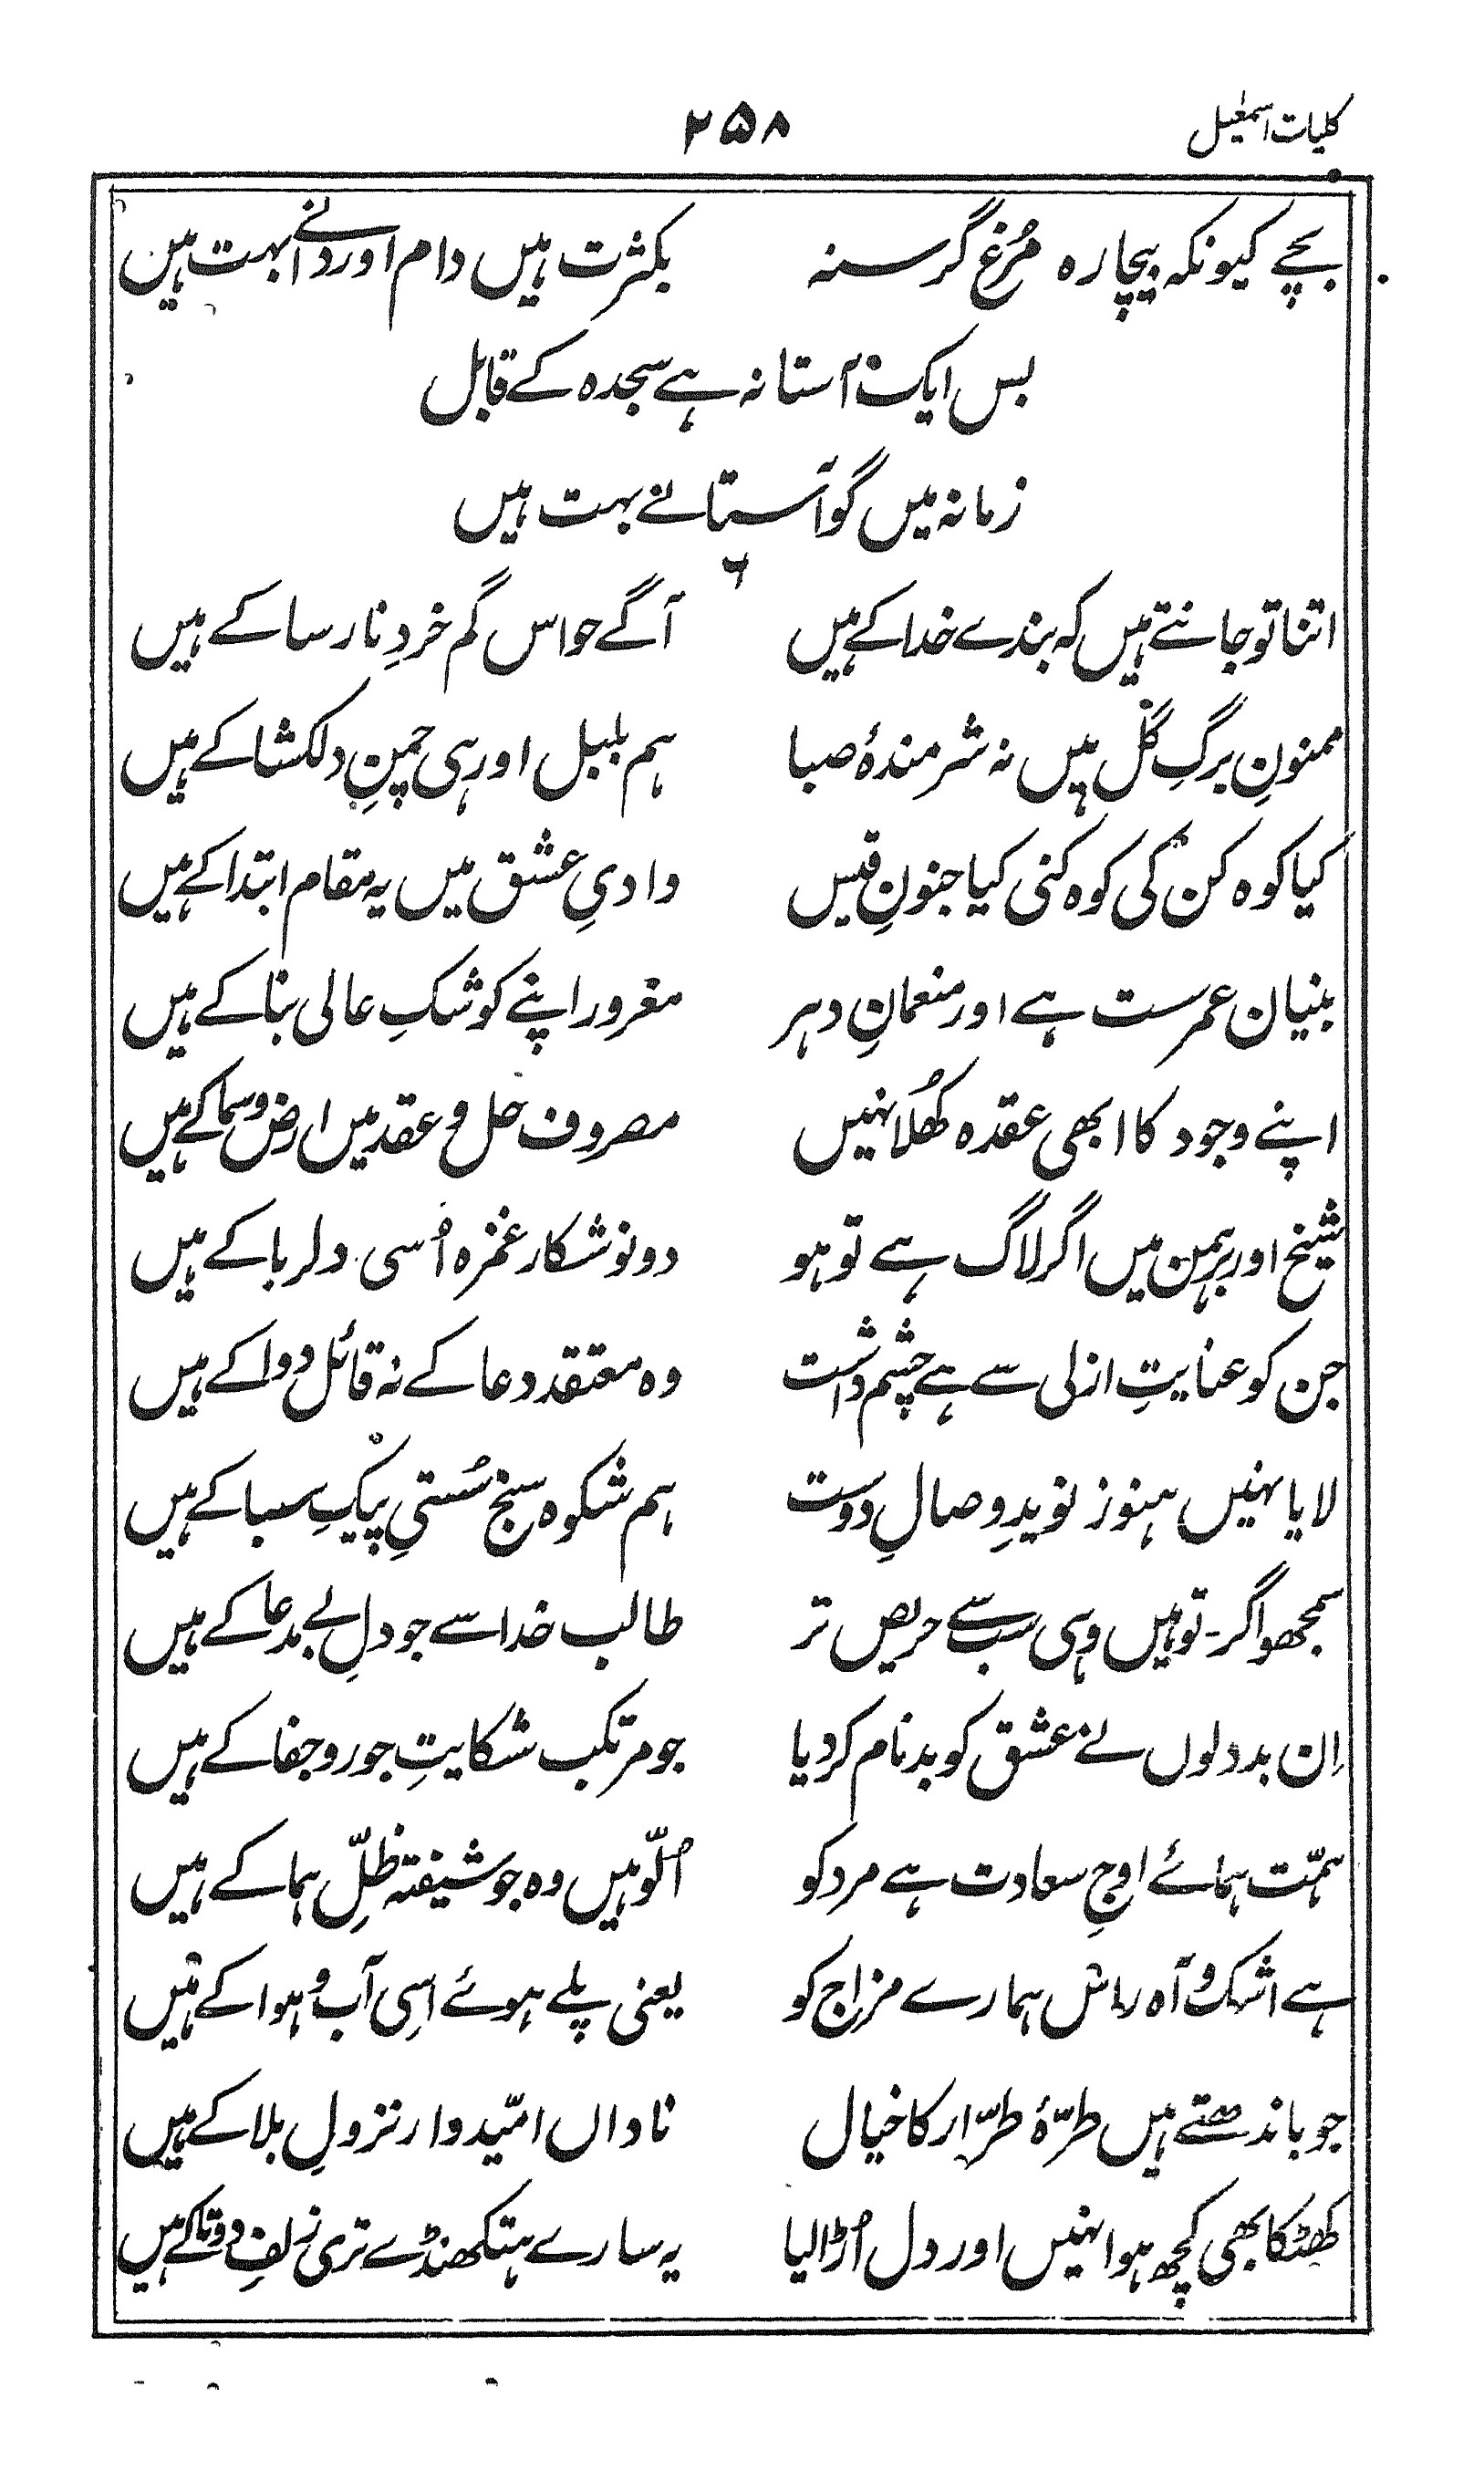 کلیات اسمٰعیل ۲۵۸
بچے کیونکہ بیچارہ مُرغِ گرسنہ بکثرت ہیں دام اور دانے بہت ہیں
بس ایک آستانہ ہے سجدہ کے قابل
زمانہ میں گو آستانے بہت ہیں
۶
اتنا تو جانتے ہیں کہ بندے خدا کے ہیں آگے حواس گم خردِ نارسا کے ہیں
ممنونِ برگِ گل ہیں نہ شرمندۂ صبا ہم بلبل اور ہی چمنِ دلکشا کے ہیں
کیا کوہ کن کی کوہ کنی کیا جنونِ قیس وادیِ عشق میں یہ مقام ابتدا کے ہیں
بنیان عمر سست ہے اور منعمانِ دہر مغرور اپنے کوشکِ عالی بنا کے ہیں
اپنے وجود کا ابھی عقدہ کھُلا نہیں مصروف حل و عقد میں ارض و سما کے ہیں
شیخ اور برہمن میں اگر لاگ ہے تو ہو دونو شکار غمزہ اُسی دلربا کے ہیں
جن کو عنایتِ ازلی سے ہے چشم داشت وہ معتقد دعا کے نہ قائل دوا کے ہیں
لایا نہیں ہنوز نویدِ وصالِ دوست ہم شکوہ سنج سُستیِ پیکِ سبا کے ہیں
سمجھو اگر۔ تو ہیں وہی سب سے حریص تر طالب خدا سے جو دلِ بے مدعا کے ہیں
اِن بددلوں نے عشق کو بدنام کر دیا جو مرتکب شکایتِ جور و جفا کے ہیں
ہمّت ہمائے اوجِ سعادت ہے مرد کو اُلّو ہیں وہ جو شیفتہ ظلِّ ہما کے ہیں
ہے اشک و آہ راس ہمارے مزاج کو یعنی پلے ہوئے اسِی آب و ہوا کے ہیں
جو باندھتے ہیں طرّۂ طرّار کا خیال ناداں امّیدوار نزولِ بلا کے ہیں
کھٹکا بھی کچھ ہوا نہیں اور دل اُڑا لیا یہ سارے ہتکھنڈے تری زلفِ دوتا کے ہیں